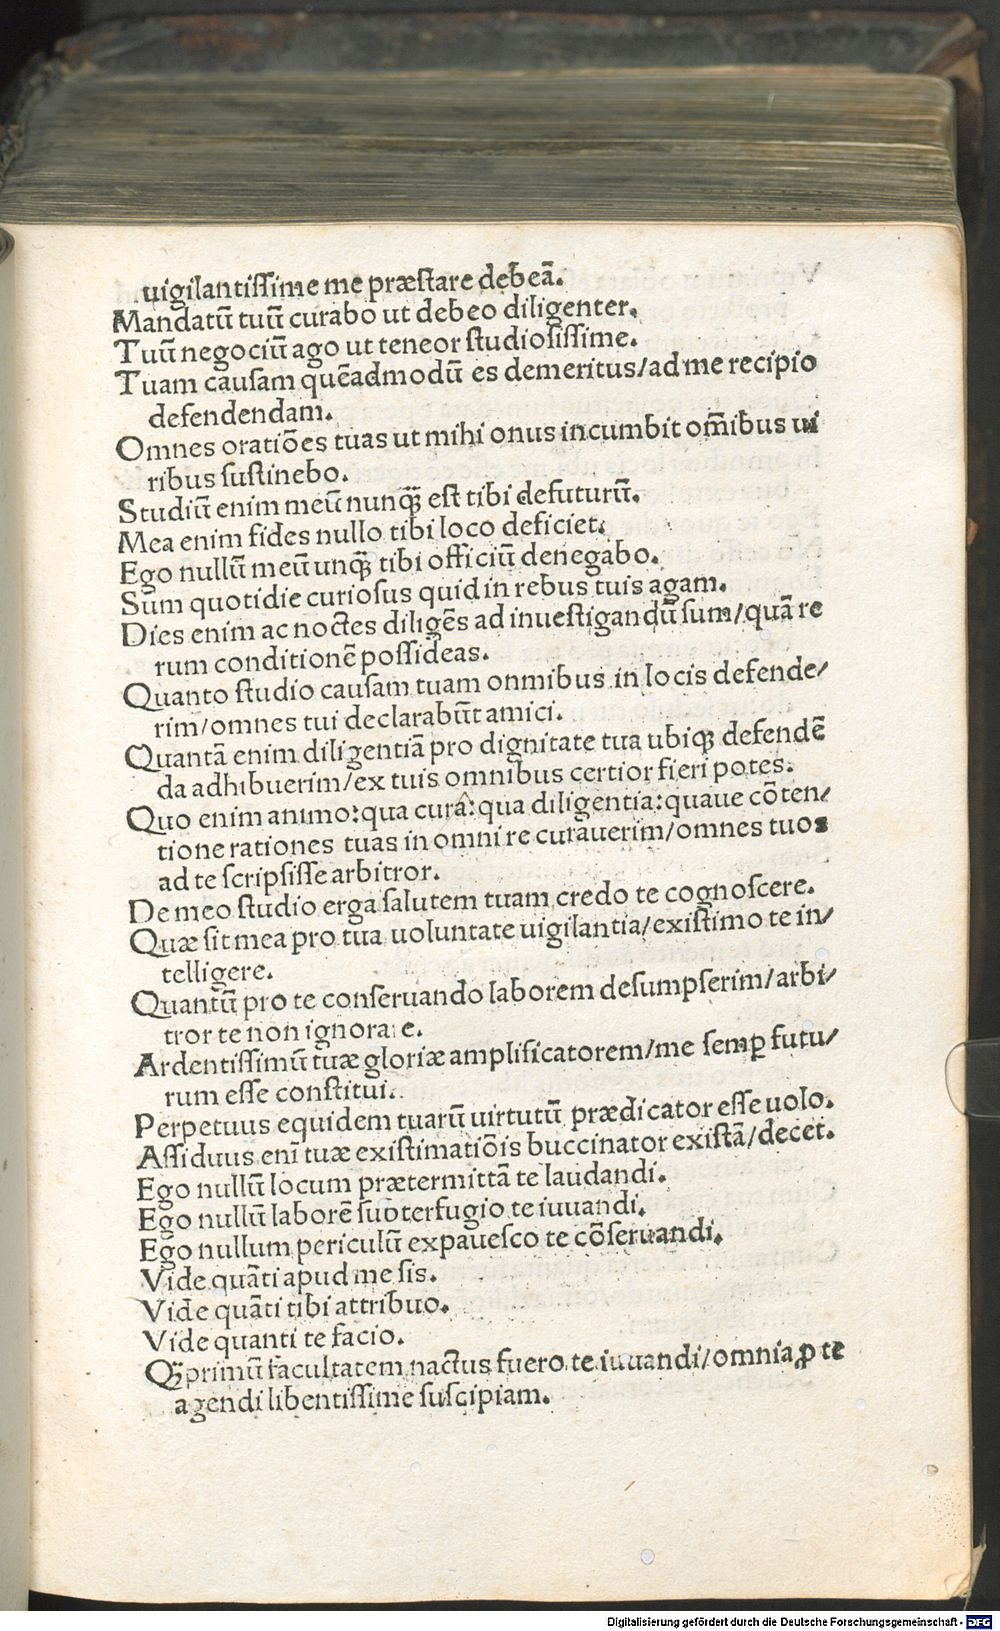 uigilantiſſime me præſtare debeā.
Mandatū tuū curabo ut debeo diligenter.
Tuū negociū ago ut teneor ſtudioſiſſime.
Tuam cauſam quēadmodū es demeritus/ad me recipio
defendendam.
Omnes oratiōes tuas ut mihi onus incumbit om̄ibus ui
ribus ſuſtinebo.
Studiū enim meū nunq̄ꝫ eſt tibi defuturū.
Mea enim fides nullo tibi loco deficiet.
Ego nullū meū unq̄ꝫ tibi officiū denegabo.
Sum quotidie curioſus quid in rebus tuis agam.
Dies enim ac noctes diligēs ad inueſtigandū ſum/quā re
rum conditionē poſſideas.
Quanto ſtudio cauſam tuam onmibus in locis defende/
rim/omnes tui declarabūt amici.
Quantā enim diligentiā pro dignitate tua ubiqꝫ defendē
da adhibuerim/ex tuis omnibus certior fieri potes.
Quo enim animo:qua cura:qua diligentia:quaue cōten/
tione rationes tuas in omni re curauerim/omnes tuos
ad te ſcripſiſſe arbitror.
De meo ſtudio erga ſalutem tuam credo te cognoſcere.
Quæ ſit mea pro tua uoluntate uigilantia/exiſtimo te in/
telligere.
Quantū pro te conſeruando laborem deſumpſerim/arbi/
tror te non ignorare.
Ardentiſſimū tuæ gloriæ amplificatorem/me ſemꝑ futu/
rum eſſe conſtitui.
Perpetuus equidem tuarū uirtutū prædicator eſſe uolo.
Aſſiduus enī tuæ exiſtimatiōis buccinator exiſtā/decet.
Ego nullū locum prætermittā te laudandi.
Ego nullū laborē ſubterfugio te iuuandi.
Ego nullum periculū expaueſco te cōſeruandi.
Vide quāti apud me ſis.
Vide quāti tibi attribuo.
Vide quanti te facio.
Qꝫprimū facultatem nactus fuero te iuuandi/omnia ꝓ te
agendi libentiſſime ſuſcipiam.
Digitalisierung gefördert durch die Deutsche Forschungsgemeinschaft - DFG